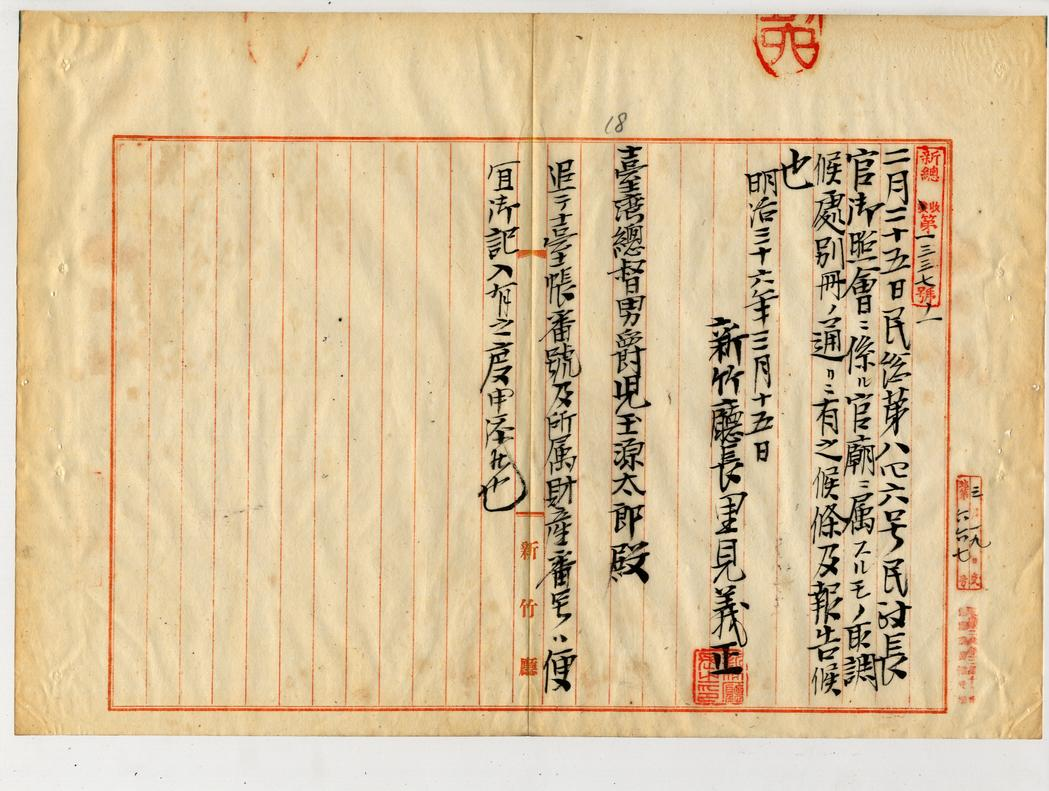 新總
第一三三七號ノ一
二月二十五日民総第八四六号民財長
官御照會ニ係ル官廟ニ属スルモノ取調
候處別冊ノ通リニ有之候條及報告候
也
明治三十六年三月十五日
新竹廳長里見義正
18
臺灣總督男爵児玉源太郎殿
追テ臺帳番號及所属財産番号ハ便
宜御記入有之度申添候也
新竹廳